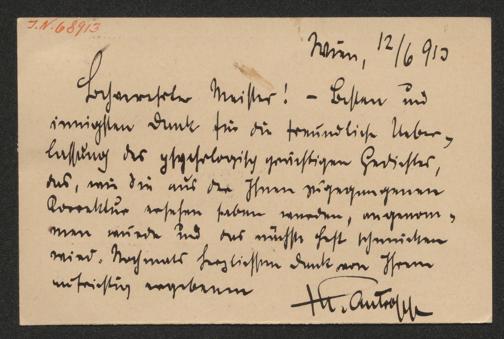 I.N. 68913
Wien, 12/6 913
Hochverehrter Meister! – Besten und
innigsten Dank für die freundliche Ueber-
lassung des psychologisch Gedichtes,
das, wie Sie aus der Ihnen zugegangenen
Korrektur ersehen haben werden, angenom-
men wurde und das nächste Heft schmücken
wird. Nochmals herzlichsten Dank von Ihrem
aufrichtig ergebenen